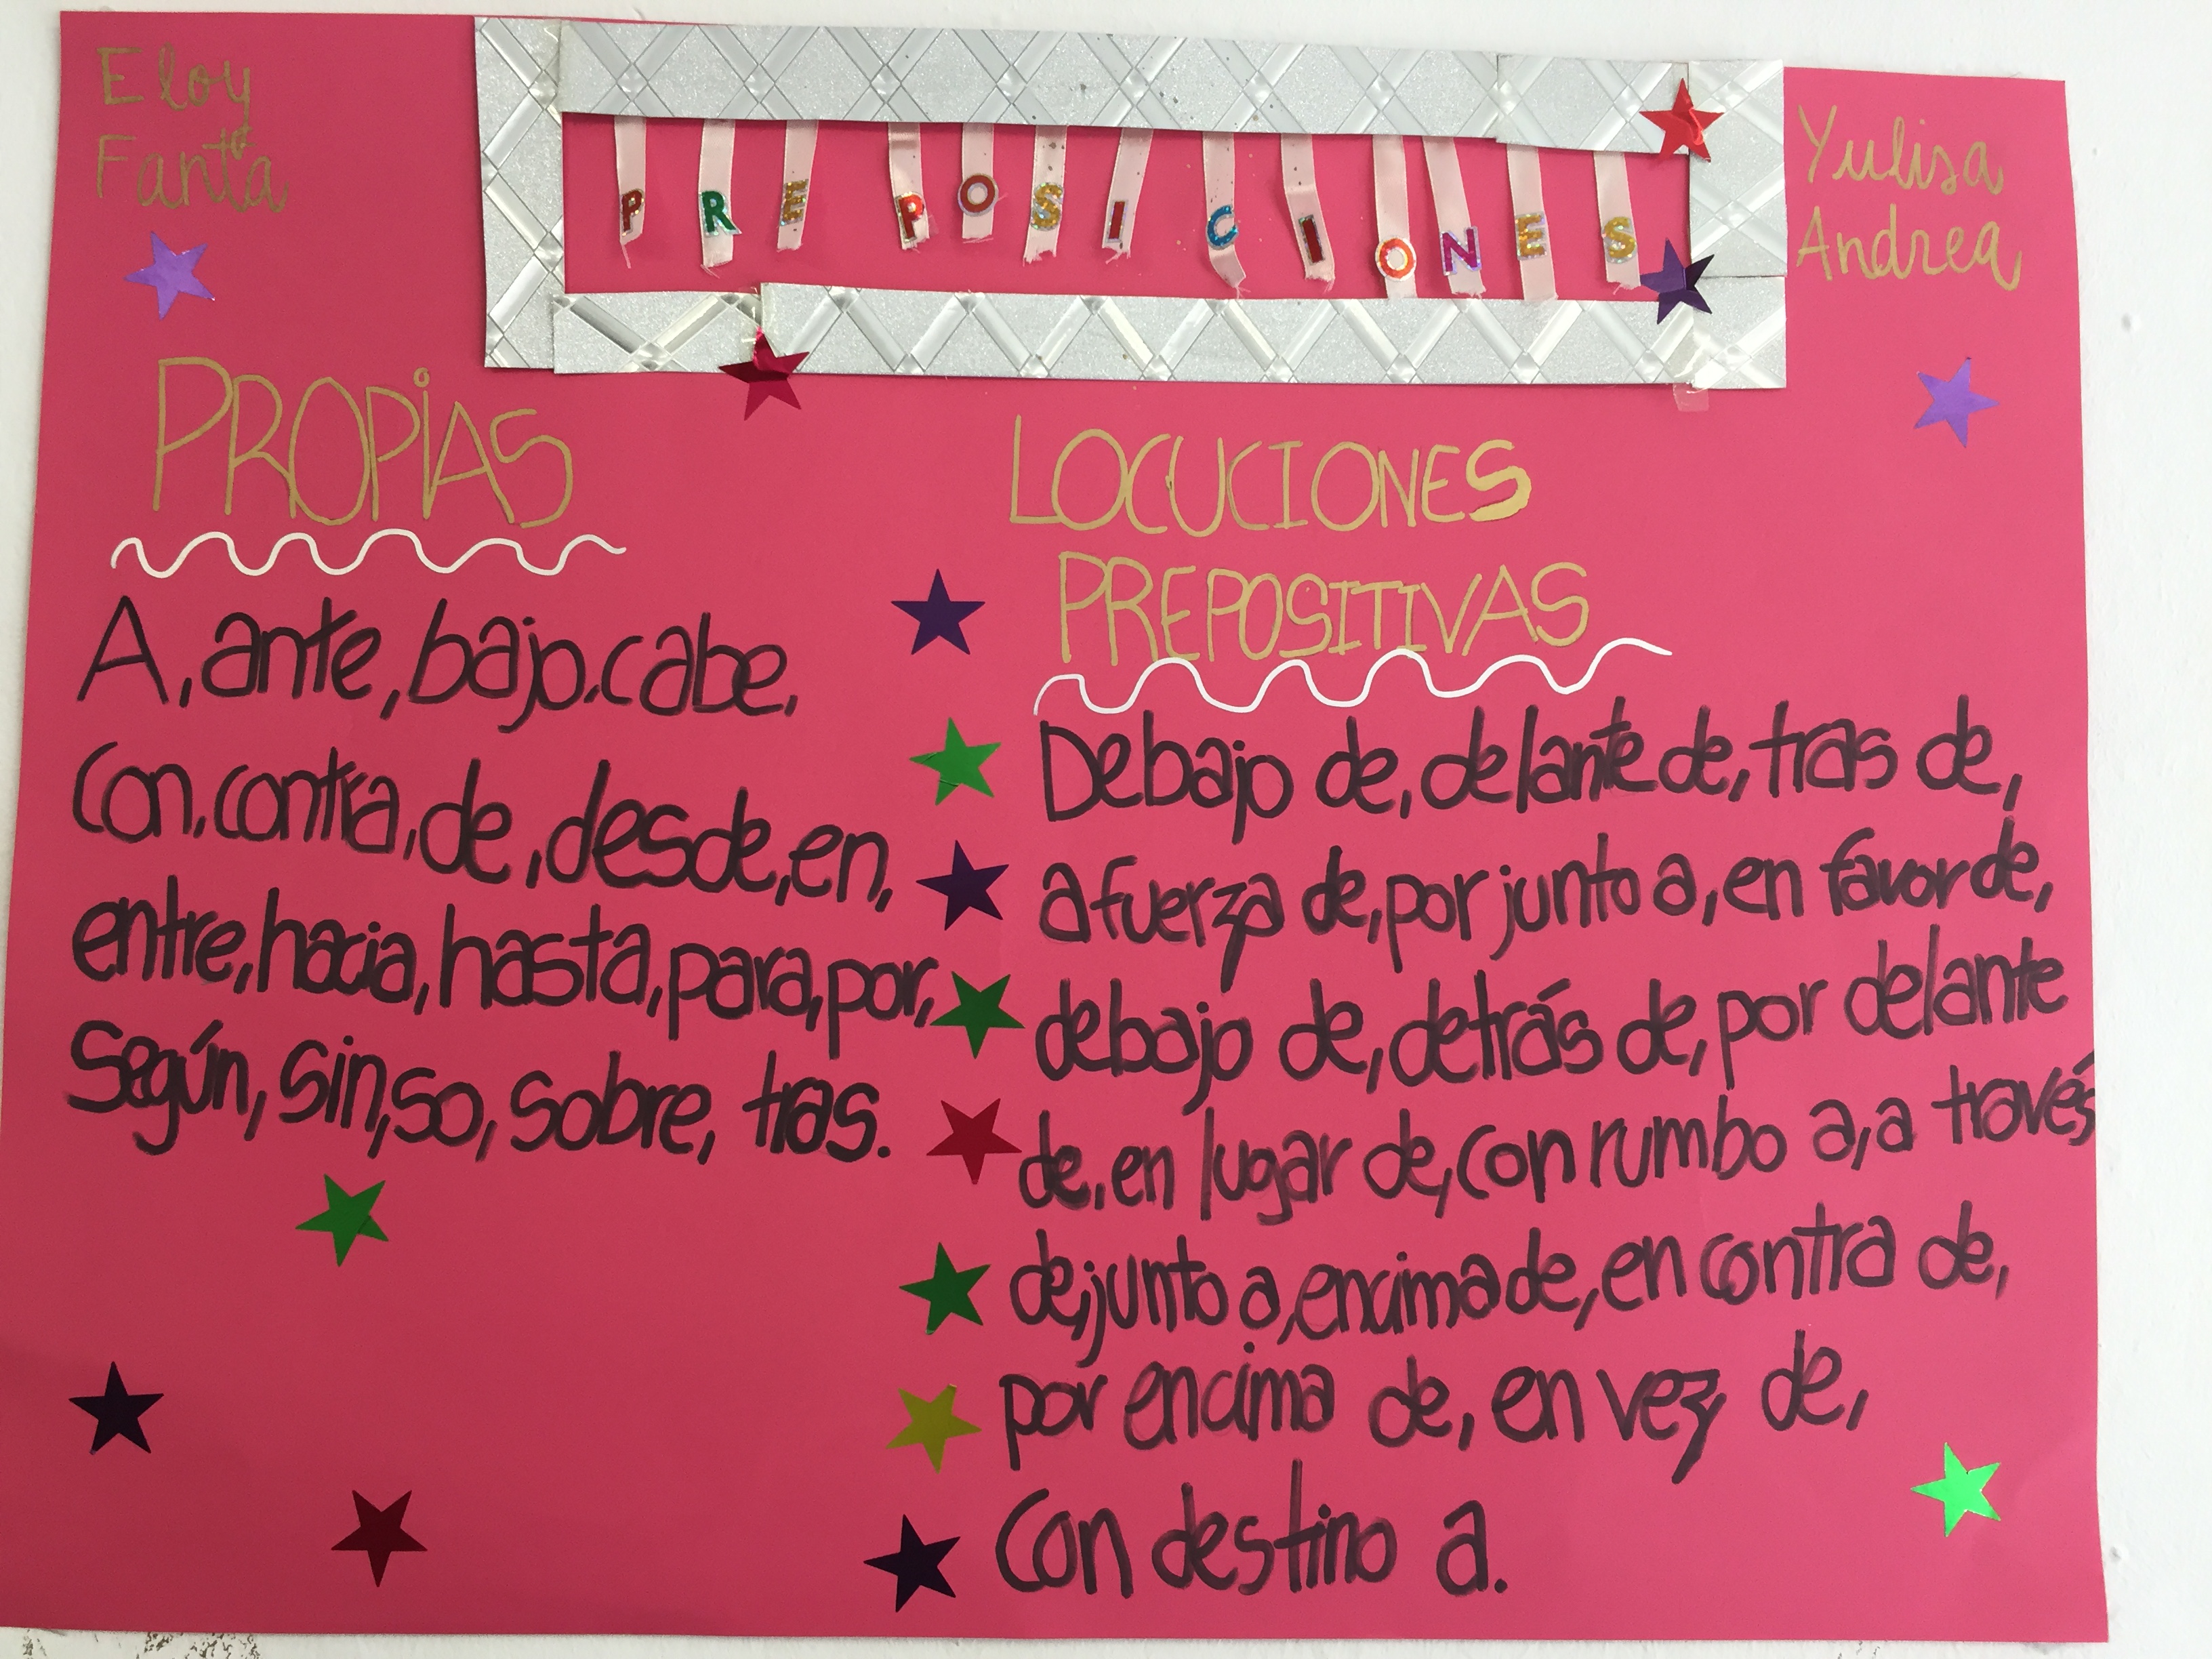 Eloy
Fanta
PREPOSICIONES
Yulisa
Andrea
PROPIAS
A, ante, bajo, cabe,
Con, contra, de, desde, en,
entre, hacia, hasta, para, por,
Según, sin, so, sobre, tras.
LOCUCIONES
PREPOSITIVAS
Debajo de, delante de, tras de,
a fuerza de, por junto a, en favor de,
debajo de, detrás de, por delante
de, en lugar de, con rumbo a, a través
de, junto a, encima de, en contra de,
por encima de, en vez de,
Con destino a.